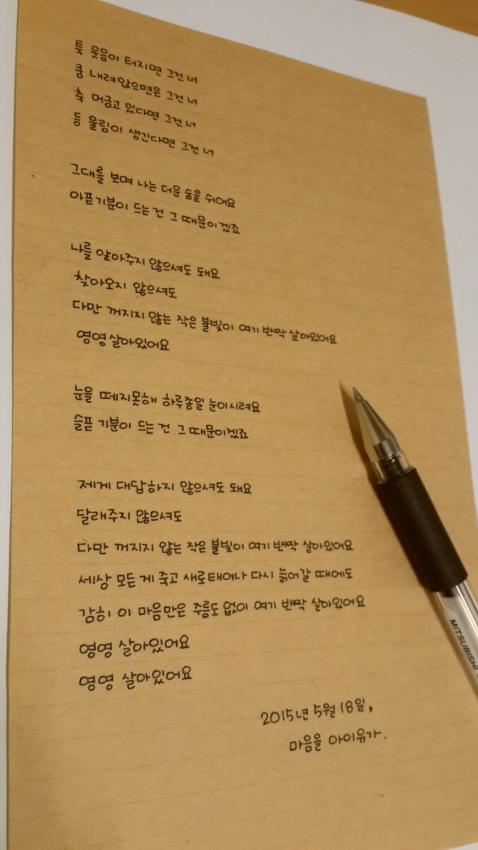 툭 웃음이 터지면 그건 너
쿵 내려앉으면은 그건 너
축 머금고 있다면 그건 너
둥 울림이 생긴다면 그건 너
그대를 보며 나는 더운 숨을 쉬어요
아픈 기분이 드는 건 그 때문이겠죠
나를 알아주지 않으셔도 돼요
찾아오지 않으셔도
다만 꺼지지 않는 작은 불빛이 여기 반짝 살아있어요
영영 살아있어요
눈을 떼지 못해 하루종일 눈이 시려요
슬픈 기분이 드는 건 그 때문이겠죠
제게 대답하지 않으셔도 돼요
달래주지 않으셔도
다만 꺼지지 않는 작은 불빛이 여기 반짝 살아있어요
세상 모든 게 죽고 새로 태어나 다시 늙어갈 때에도
감히 이 마음만은 주름도 없이 여기 반짝 살아있어요
영영 살아있어요
영영 살아있어요
2015년 5월 18일,
마음을 아이유가.
MITSUBISHI